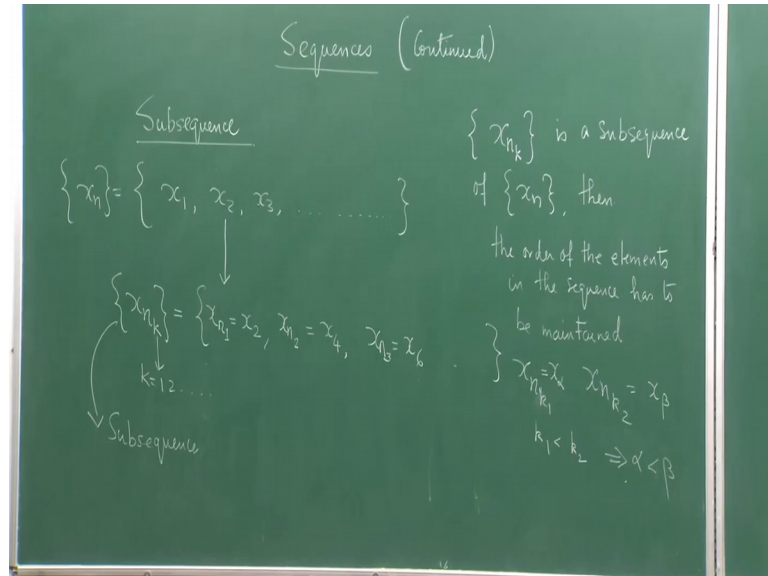 Sequences (Continued)
Subsequence
{xₙ} = { x₁, x₂, x₃, . . . . . . . . . . }
{x_{n_k}} = { x_{n_1} = x₂, x_{n_2} = x₄, x_{n_3} = x₆ . }
k=1 2 . . . .
Subsequence
{ x_{n_k} } is a subsequence
of {xₙ}, then
the order of the elements
in the sequence has to
be maintained
x_{n_{k_1}} = x_α x_{n_{k_2}} = x_β
k₁ < k₂ ⇒ α < β